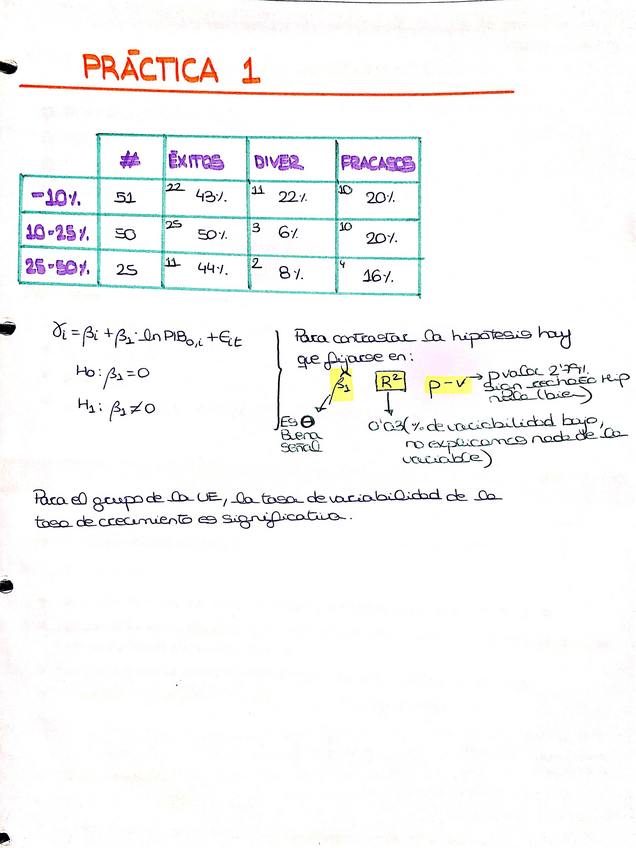 PRÁCTICA 1
# ÉXITOS DIVER FRACASOS
-10% 51 22 43% 11 22% 10 20%
10-25% 50 25 50% 3 6% 10 20%
25-50% 25 11 44% 2 8% 4 16%
γi = βi + β1 · ln PIB0,i + Eit
H0: β1 = 0
H1: β1 ≠ 0
Para contrastar la hipótesis hay
que fijarse en:
β1 R² p-v → p valor 2'79%
sign rechazo hip
nula (bien)
Es ⊖
Buena
señal
0'03 (% de variabilidad bajo,
no explicamos nada de la
variable)
Para el grupo de la UE, la tasa de variabilidad de la
tasa de crecimiento es significativa.